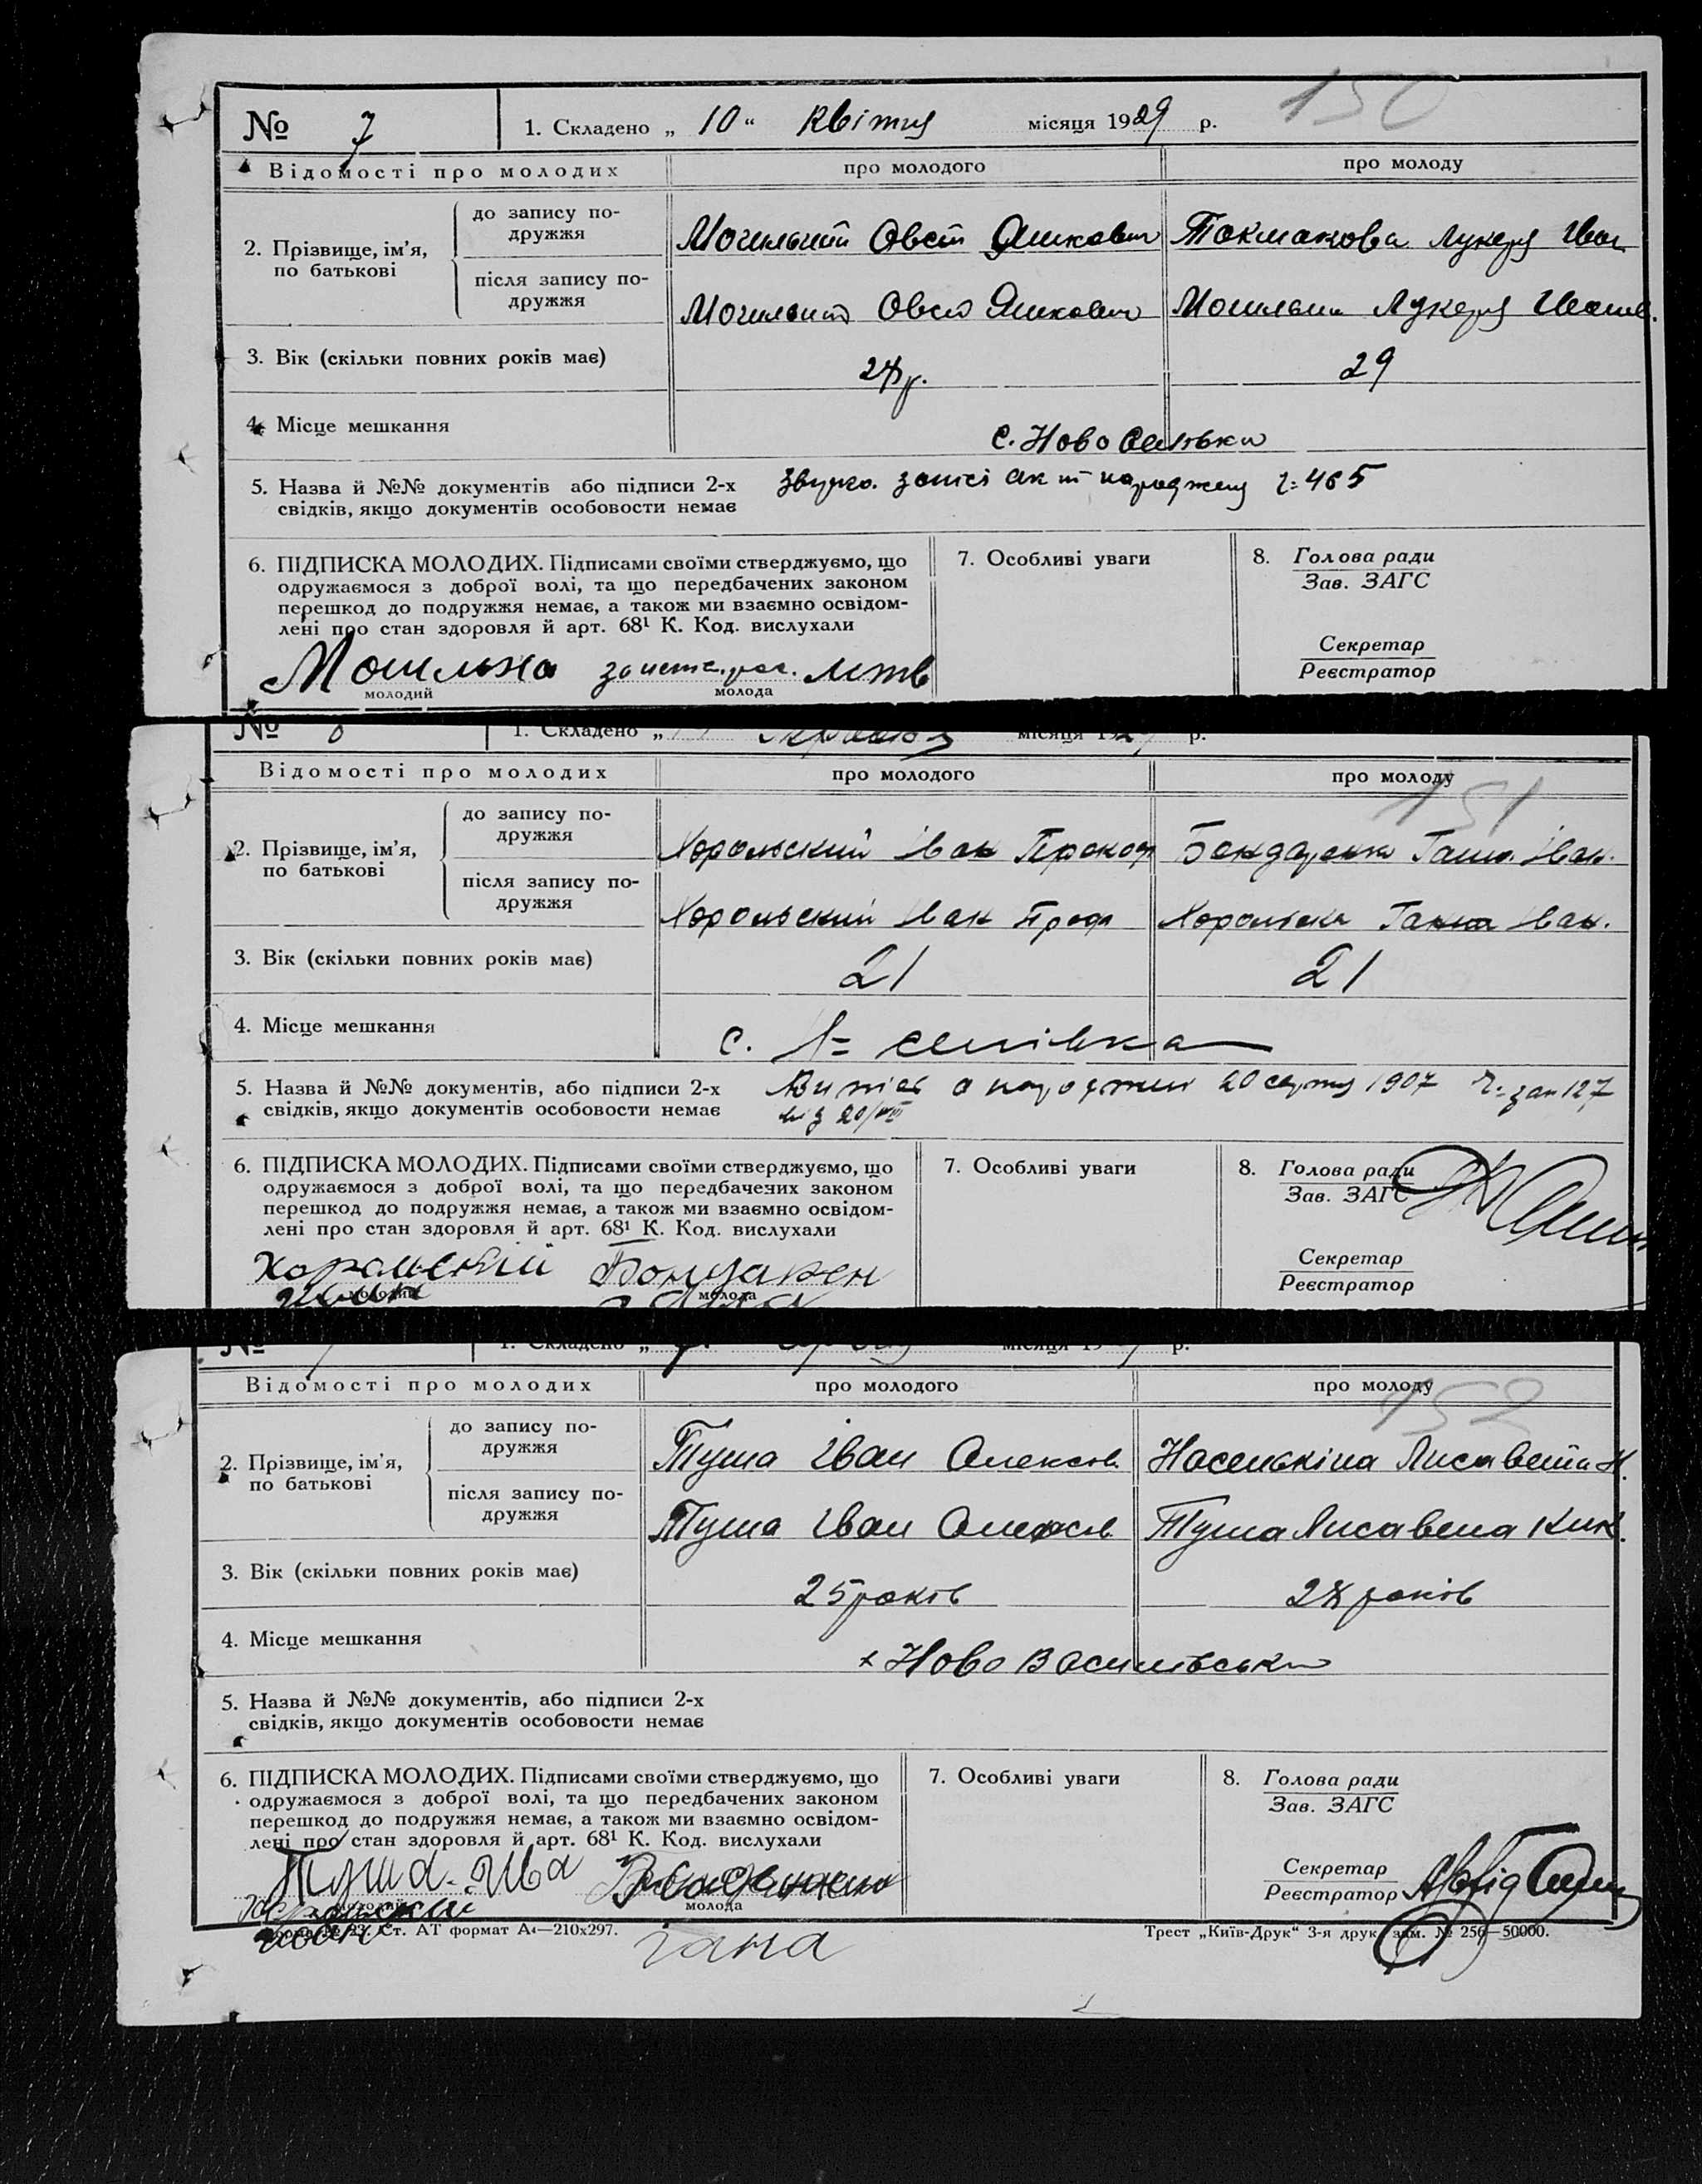 150
№ 7 1. Складено „ 10 “ Квітня місяця 1929 р.
Відомості про молодих про молодого про молоду
2. Прізвище, ім’я, по батькові
до запису по-
дружжя
Могильний Овсій Токмакова Лукеря Іван
після запису по-
дружжя
Могильний Овсій Лукеря
3. Вік (скільки повних років має) 29
4. Місце мешкання с. Ново Селівка
5. Назва й №№ документів або підписи 2-х
свідків, якщо документів особовости немає
465
6. ПІДПИСКА МОЛОДИХ. Підписами своїми стверджуємо, що
одружаємося з доброї волі, та що передбачених законом
перешкод до подружжя немає, а також ми взаємно освідом-
лені про стан здоровля й арт. 68¹ К. Код. вислухали
молодий молода
7. Особливі уваги
8. Голова ради
Зав. ЗАГС
Секретар
Реєстратор
№ 8 1. Складено „ місяця 192 р.
Відомості про молодих про молодого про молоду
151
2. Прізвище, ім’я,
по батькові
до запису по-
дружжя
Хорольский Іван Прокоф Бондаренко Ганна Іван.
після запису по-
дружжя
Хорольский Іван Проф Хорольска Ганна Іван.
3. Вік (скільки повних років має) 21 21
4. Місце мешкання с. селівка
5. Назва й №№ документів, або підписи 2-х
свідків, якщо документів особовости немає
Витяг о народжені 20 серпня 1907 зап 127
від 20/VIII
6. ПІДПИСКА МОЛОДИХ. Підписами своїми стверджуємо, що
одружаємося з доброї волі, та що передбачених законом
перешкод до подружжя немає, а також ми взаємно освідом-
лені про стан здоровля й арт. 68¹ К. Код. вислухали
Хорольский Бондарен
молодий молода
7. Особливі уваги
8. Голова ради
Зав. ЗАГС
Секретар
Реєстратор
№ 1. Складено „ місяця 19 р.
Відомості про молодих про молодого про молоду
152
2. Прізвище, ім’я,
по батькові
до запису по-
дружжя
Туша Іван Олексов. Насенькіна Лисавета Н.
після запису по-
дружжя
Туша Іван Олексов Туша Лисавета
3. Вік (скільки повних років має) 25 років років
4. Місце мешкання х Ново Васильвськи
5. Назва й №№ документів, або підписи 2-х
свідків, якщо документів особовости немає
6. ПІДПИСКА МОЛОДИХ. Підписами своїми стверджуємо, що
одружаємося з доброї волі, та що передбачених законом
перешкод до подружжя немає, а також ми взаємно освідом-
лені про стан здоровля й арт. 68¹ К. Код. вислухали
Туша Ива
молода
гана
7. Особливі уваги
8. Голова ради
Зав. ЗАГС
Секретар
Реєстратор
Ст. АТ формат А4—210х297.
Трест „Київ-Друк“ 3-я друк. зам. № 256—50000.